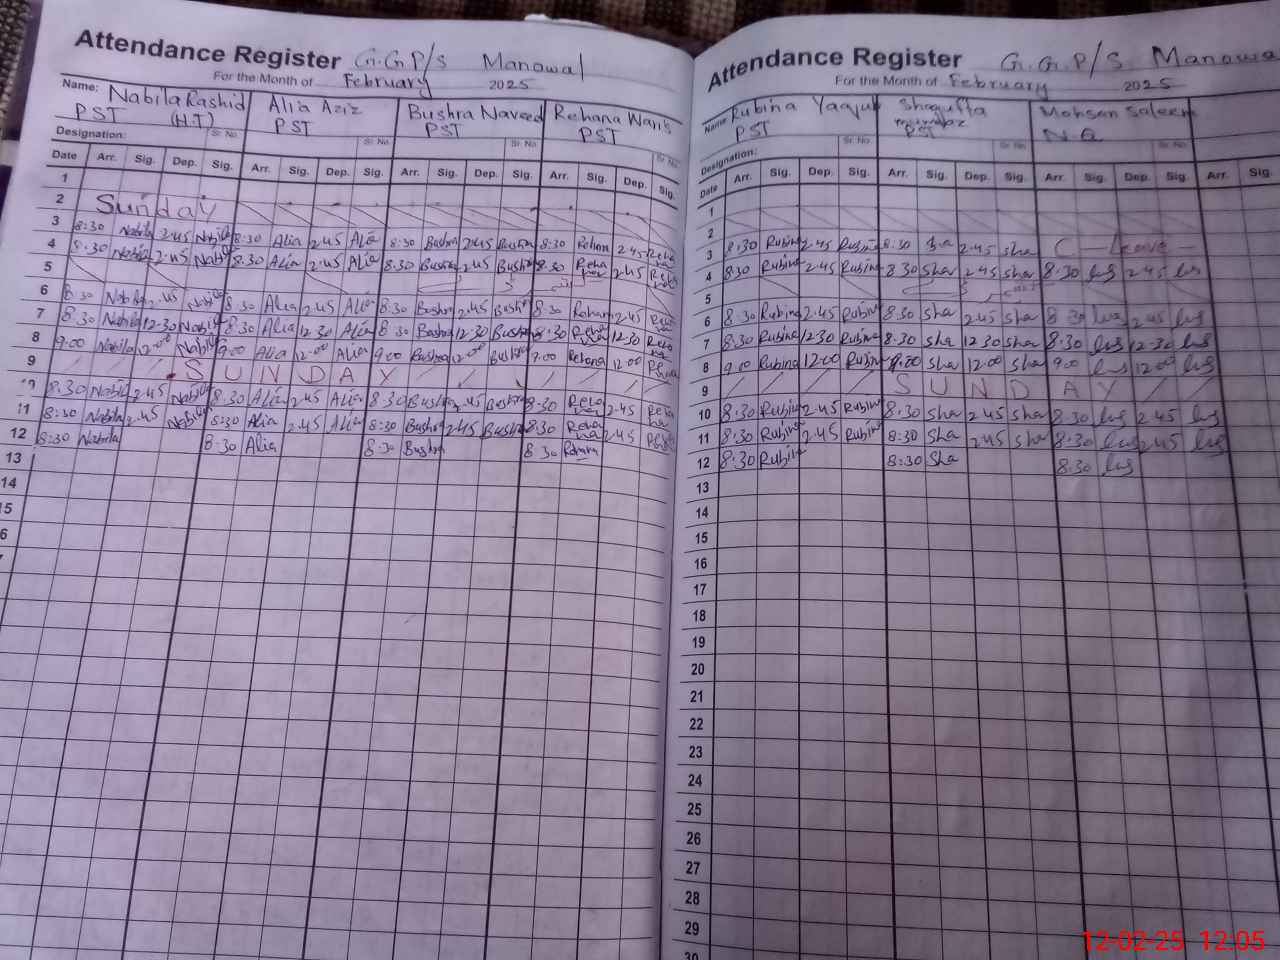 Attendance Register G.G.P/S Manowal
For the Month of February 2025
Name: Nabila Rashid Alia Aziz Bushra Naveed Rehana Waris
PST (H.T) PST PST PST
Designation: Sr. No. Sr. No. Sr. No. Sr. No.
Date Arr. Sig. Dep. Sig. Arr. Sig. Dep. Sig. Arr. Sig. Dep. Sig. Arr. Sig. Dep. Sig.
1
2 Sunday
3 8:30 Nabila 2:45 Nabila 8:30 Alia 2:45 Alia 8:30 Bushra 2:45 Bushra 8:30 Rehana 2:45 Rehana
4 8:30 Nabila 2:45 Nabila 8:30 Alia 2:45 Alia 8:30 Bushra 2:45 Bushra 8:30 Rehana 2:45 Rehana
5
6 8:30 Nabila 2:45 Nabila 8:30 Alia 2:45 Alia 8:30 Bushra 2:45 Bushra 8:30 Rehana 2:45 Rehana
7 8:30 Nabila 12:30 Nabila 8:30 Alia 12:30 Alia 8:30 Bushra 12:30 Bushra 8:30 Rehana 12:30 Rehana
8 9:00 Nabila 12:00 Nabila 9:00 Alia 12:00 Alia 9:00 Bushra 12:00 Bushra 9:00 Rehana 12:00 Rehana
9 SUNDAY
10 8:30 Nabila 2:45 Nabila 8:30 Alia 2:45 Alia 8:30 Bushra 2:45 Bushra 8:30 Rehana 2:45 Rehana
11 8:30 Nabila 2:45 Nabila 8:30 Alia 2:45 Alia 8:30 Bushra 2:45 Bushra 8:30 Rehana 2:45 Rehana
12 8:30 Nabila 8:30 Alia 8:30 Bushra 8:30 Rehana
13
14
15
16
Attendance Register G.G.P/S. Manowal
For the Month of February 2025
Name Rubina Yaqub Shagufta Mohsan Saleem
PST PST N.Q
Designation: Sr. No. Sr. No. Sr. No.
Date Arr. Sig. Dep. Sig. Arr. Sig. Dep. Sig. Arr. Sig. Dep. Sig. Arr. Sig.
1
2
3 8:30 Rubina 2:45 Rubina 8:30 Sha 2:45 Sha C - Leave -
4 8:30 Rubina 2:45 Rubina 8:30 Sha 2:45 Sha 8:30 2:45
5
6 8:30 Rubina 2:45 Rubina 8:30 Sha 2:45 Sha 8:30 2:45
7 8:30 Rubina 12:30 Rubina 8:30 Sha 12:30 Sha 8:30 12:30
8 9:00 Rubina 12:00 Rubina 9:00 Sha 12:00 Sha 9:00 12:00
9 SUNDAY
10 8:30 Rubina 2:45 Rubina 8:30 Sha 2:45 Sha 8:30 2:45
11 8:30 Rubina 2:45 Rubina 8:30 Sha 2:45 Sha 8:30 2:45
12 8:30 Rubina 8:30 Sha 8:30
13
14
15
16
17
18
19
20
21
22
23
24
25
26
27
28
29
30
12-02-25 12:05